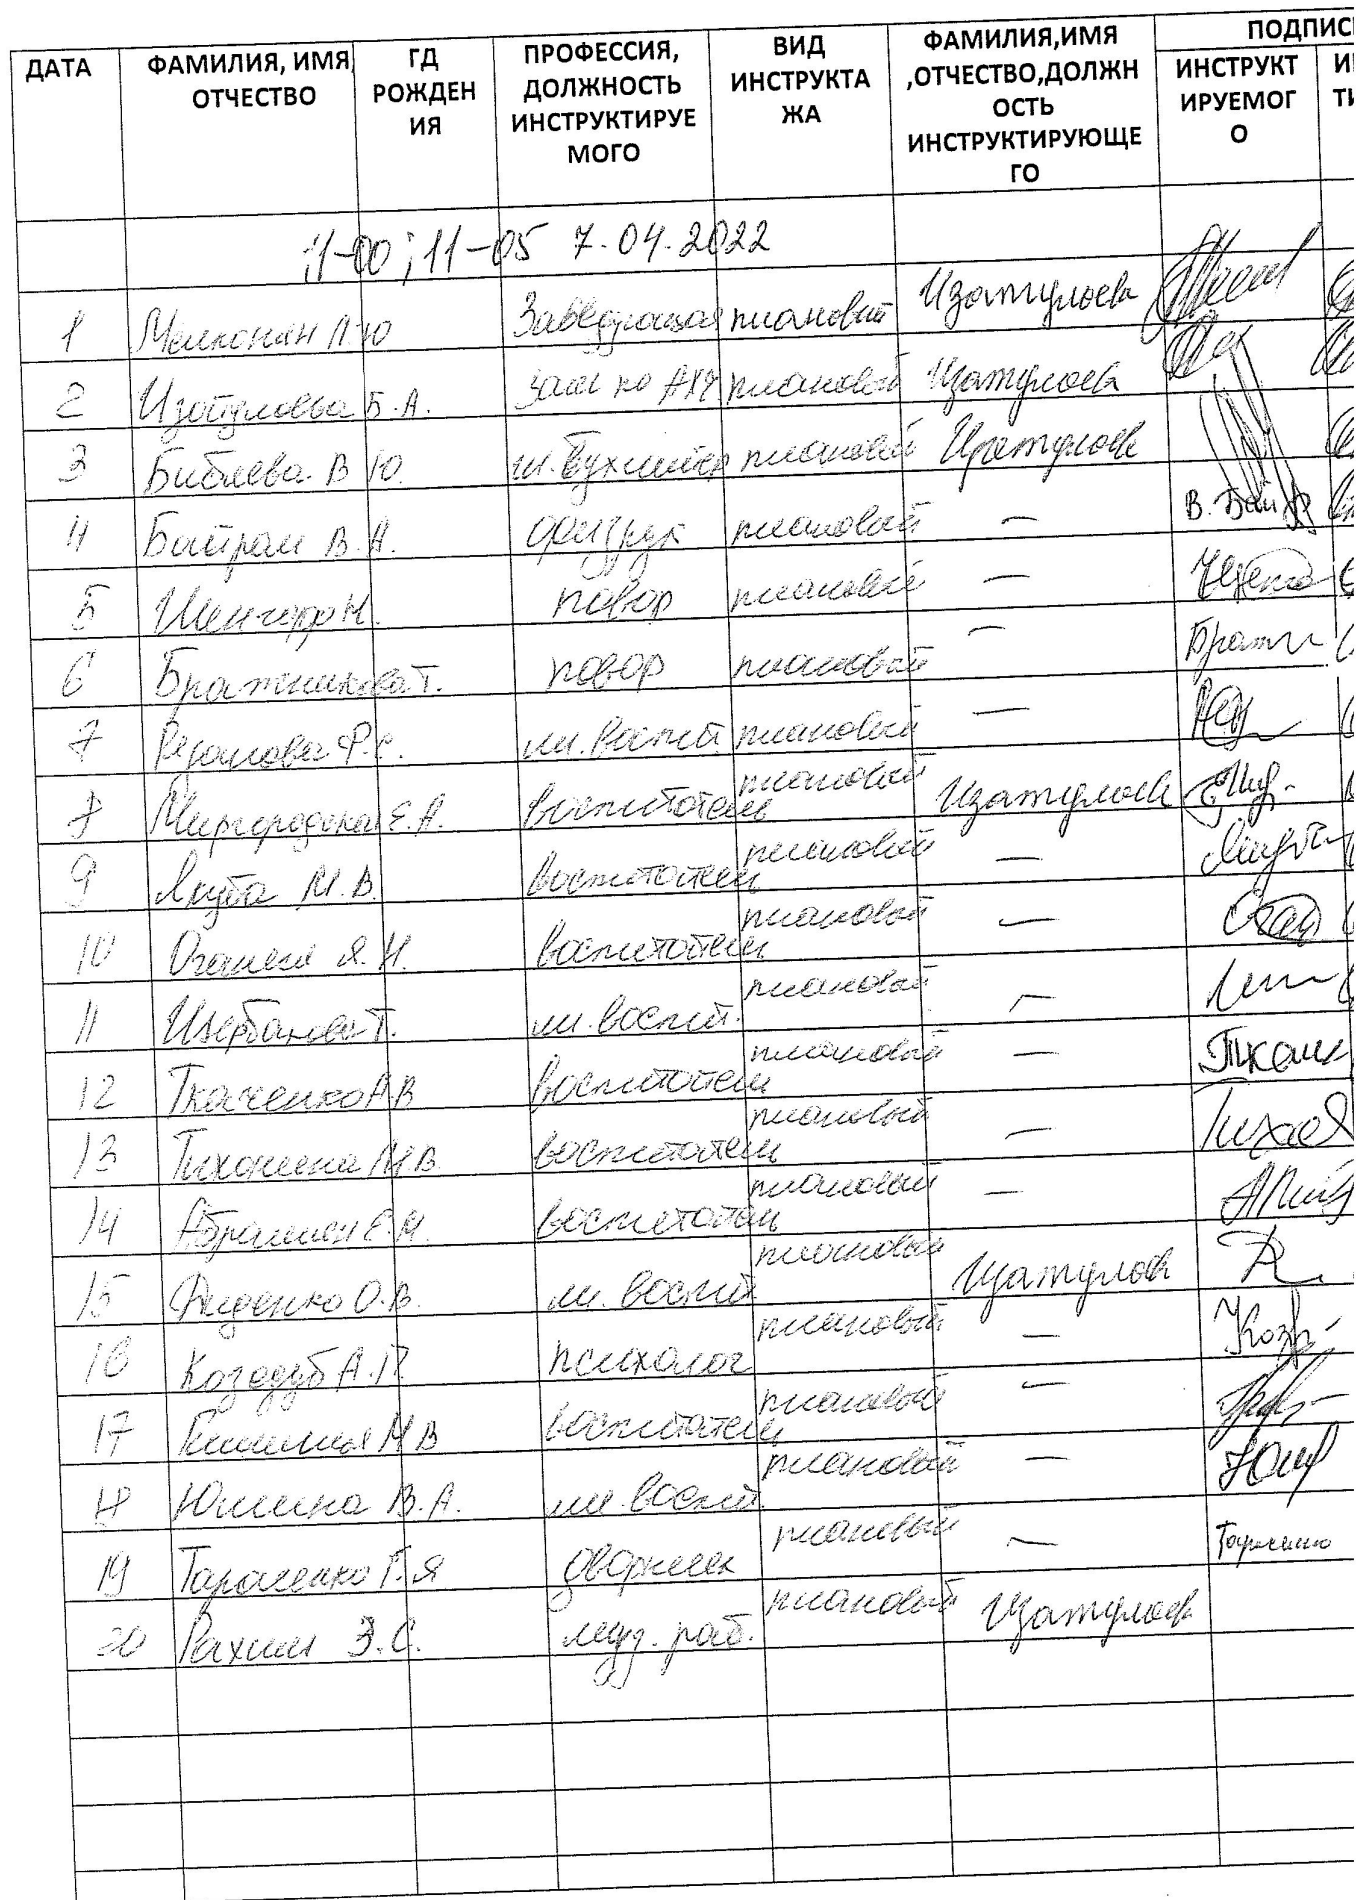 ДАТА ФАМИЛИЯ, ИМЯ, ОТЧЕСТВО ГД РОЖДЕНИЯ ПРОФЕССИЯ, ДОЛЖНОСТЬ ИНСТРУКТИРУЕМОГО ВИД ИНСТРУКТАЖА ФАМИЛИЯ,ИМЯ ,ОТЧЕСТВО,ДОЛЖНОСТЬ ИНСТРУКТИРУЮЩЕГО ПОДПИС
ИНСТРУКТИРУЕМОГО
11-00; 11-05 7.04.2022
1 Мелконян Л.Ю Заведующая плановый Изатулоева
2 Изатулоева Б.А. зам по АХЧ плановый Изатулоева
3 В Ю. плановый Изатулоева
4 Байрам В.А. физрук плановый — В. Бай
5 Н. повар плановый —
6 Бражникова Т. повар плановый — Бражн
7 Ф.С. мл. воспит. плановый —
8 Миргородская Е.А. воспитатель плановый Изатулоева
9 Якуба М.В. воспитатель плановый —
10 Я.Н. воспитатель плановый —
11 Щербакова Т. мл. воспит. плановый —
12 Ткаченко А.В воспитатель плановый — Ткаче
13 М.В. воспитатель плановый —
14 Е.М. воспитатель плановый —
15 Диденко О.В. мл. воспит. плановый Изатулоева
16 Козодуб А.П. психолог плановый — Коз
17 М В воспитатель плановый —
18 Юшина В.А. мл. воспит. плановый —
19 Тарасенко Г.Я дворник плановый —
20 Э.С. мед. раб. плановый Изатулоева